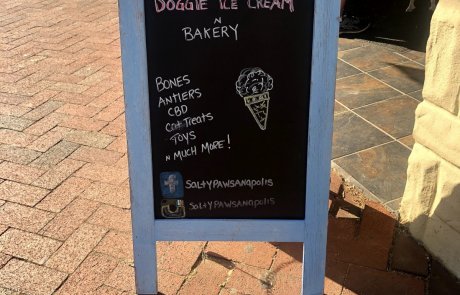 DOGGIE ICE CREAM
N
BAKERY
BONES
ANTLERS
CBD
Cat Treats
TOYS
N MUCH MORE!
SALTYPAWSANAPOLIS
SALTYPAWSANAPOLIS